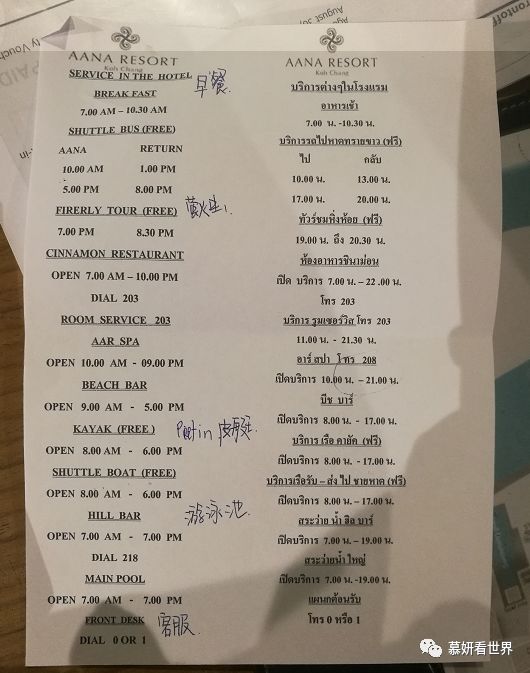 AANA RESORT
Koh Chang
SERVICE IN THE HOTEL
早餐
BREAK FAST
7.00 AM – 10.30 AM
SHUTTLE BUS (FREE)
AANA RETURN
10.00 AM 1.00 PM
5.00 PM 8.00 PM
FIRERLY TOUR (FREE)
萤火虫
7.00 PM 8.30 PM
CINNAMON RESTAURANT
OPEN 7.00 AM – 10.00 PM
DIAL 203
ROOM SERVICE 203
AAR SPA
OPEN 10.00 AM - 09.00 PM
BEACH BAR
OPEN 9.00 AM - 5.00 PM
KAYAK (FREE )
皮艇
OPEN 8.00 AM - 6.00 PM
SHUTTLE BOAT (FREE)
OPEN 8.00 AM - 6.00 PM
HILL BAR
游泳池
OPEN 7.00 AM - 7.00 PM
DIAL 218
MAIN POOL
OPEN 7.00 AM - 7.00 PM
FRONT DESK
客服
DIAL 0 OR 1
AANA RESORT
Koh Chang
บริการต่างๆในโรงแรม
อาหารเช้า
7.00 น. -10.30 น.
บริการรถไปหาดทรายขาว (ฟรี)
ไป กลับ
10.00 น. 13.00 น.
17.00 น. 20.00 น.
ทัวร์ชมหิ่งห้อย (ฟรี)
19.00 น. ถึง 20.30 น.
ห้องอาหารชินาม่อน
เปิด บริการ 7.00 น. – 22 .00 น.
โทร 203
บริการ รูมเซอร์วิส โทร 203
11.00 น. - 21.30 น.
อาร์ สปา โทร 208
เปิดบริการ 10.00 น. – 21.00 น.
บีช บาร์
เปิดบริการ 8.00 น. - 17.00 น.
บริการ เรือ คายัค (ฟรี)
เปิดบริการ 8.00 น. - 17.00 น.
บริการเรือรับ – ส่ง ไป ชายหาด (ฟรี)
เปิดบริการ 8.00 น. – 17.00 น.
สระว่าย น้ำ ฮิล บาร์
เปิดบริการ 7.00 น. – 19.00 น.
สระว่ายน้ำ ใหญ่
เปิดบริการ 7.00 น. -19.00 น.
แผนกต้อนรับ
โทร 0 หรือ 1
慕妍看世界